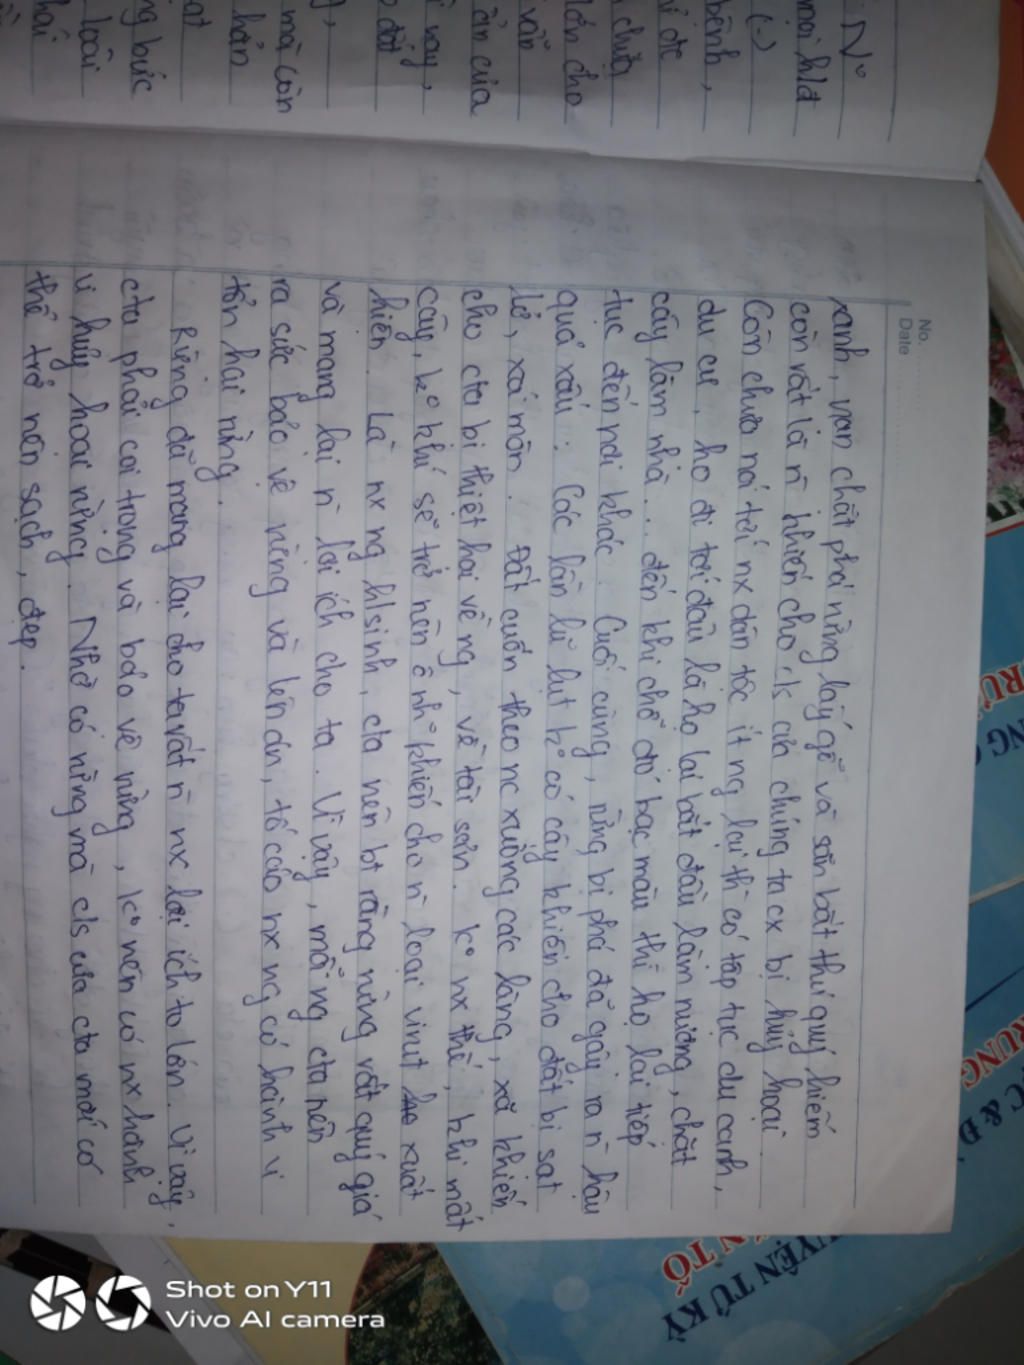 No.
Date
xanh, nạn chặt phá rừng lấy gỗ và săn bắt thú quý hiếm
còn rất là n̄ khiến cho cs của chúng ta cx bị huỷ hoại.
Còn chưa nói tới nx dân tộc ít ng lại thì có tập tục du canh,
du cư, họ đi tới đâu là họ lại bắt đầu làm nương, chặt
cây làm nhà... đến khi chỗ đó bạc màu thì họ lại tiếp
tục đến nơi khác. Cuối cùng, rừng bị phá đã gây ra n̄ hậu
quả xấu: Các lần lũ lụt k° có cây khiến cho đất bị sạt
lở, xói mòn. Đất cuốn theo nc xuống các làng, xã khiến
cho cta bị thiệt hại về ng, về tài sản. k° nx thế, khi mất
cây, k° khí sẽ trở nên ô nh° khiến cho n̄ loại virut xuất
hiện. Là nx ng hlsinh, cta nên bt rằng rừng rất quý giá
và mang lại n̄ lợi ích cho ta. Vì vậy, mỗi ng cta nên
ra sức bảo vệ rừng và lên án, tố cáo nx ng có hành vi
tổn hại rừng.
Rừng đã mang lại cho ta rất n̄ nx lợi ích to lớn. Vì vậy,
cta phải coi trọng và bảo vệ rừng, k° nên có nx hành
vi huỷ hoại rừng. Nhờ có rừng mà cs của cta mới có
thể trở nên sạch, đẹp.
N°
mọi hlđ
(-)
bệnh,
chữa
lớn cho
vẫn
ản của
vậy,
đất
mà còn
hản
ng bức
loài
UYỆN TỨ KỲ
ÊN TỐ
RUNG
Shot on Y11
Vivo AI camera